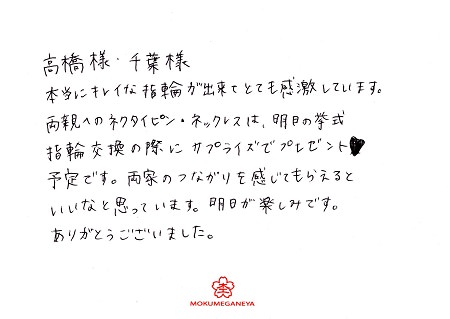 高橋様・千葉様
本当にキレイな指輪が出来てとても感激しています。
両親へのネクタイピン・ネックレスは、明日の挙式
指輪交換の際にサプライズでプレゼント♥
予定です。両家のつながりを感じてもらえると
いいなと思っています。明日が楽しみです。
ありがとうございました。
MOKUMEGANEYA